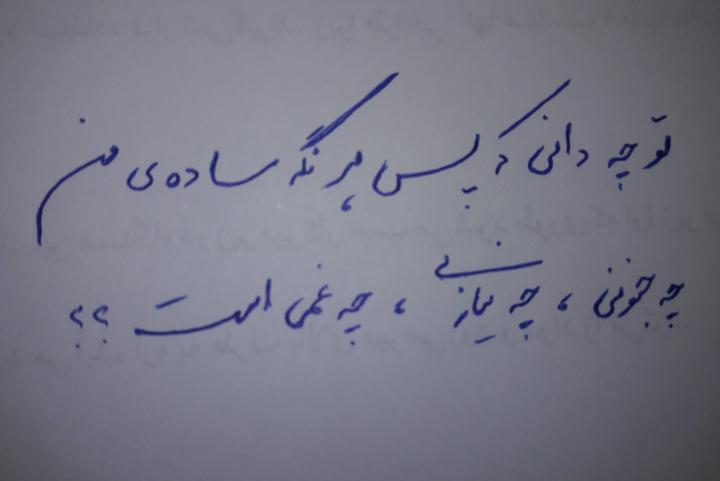 تو چه دانی که پس هر نگه ساده‌ی من
چه جنونی ، چه نیازی ، چه غمی است ؟؟